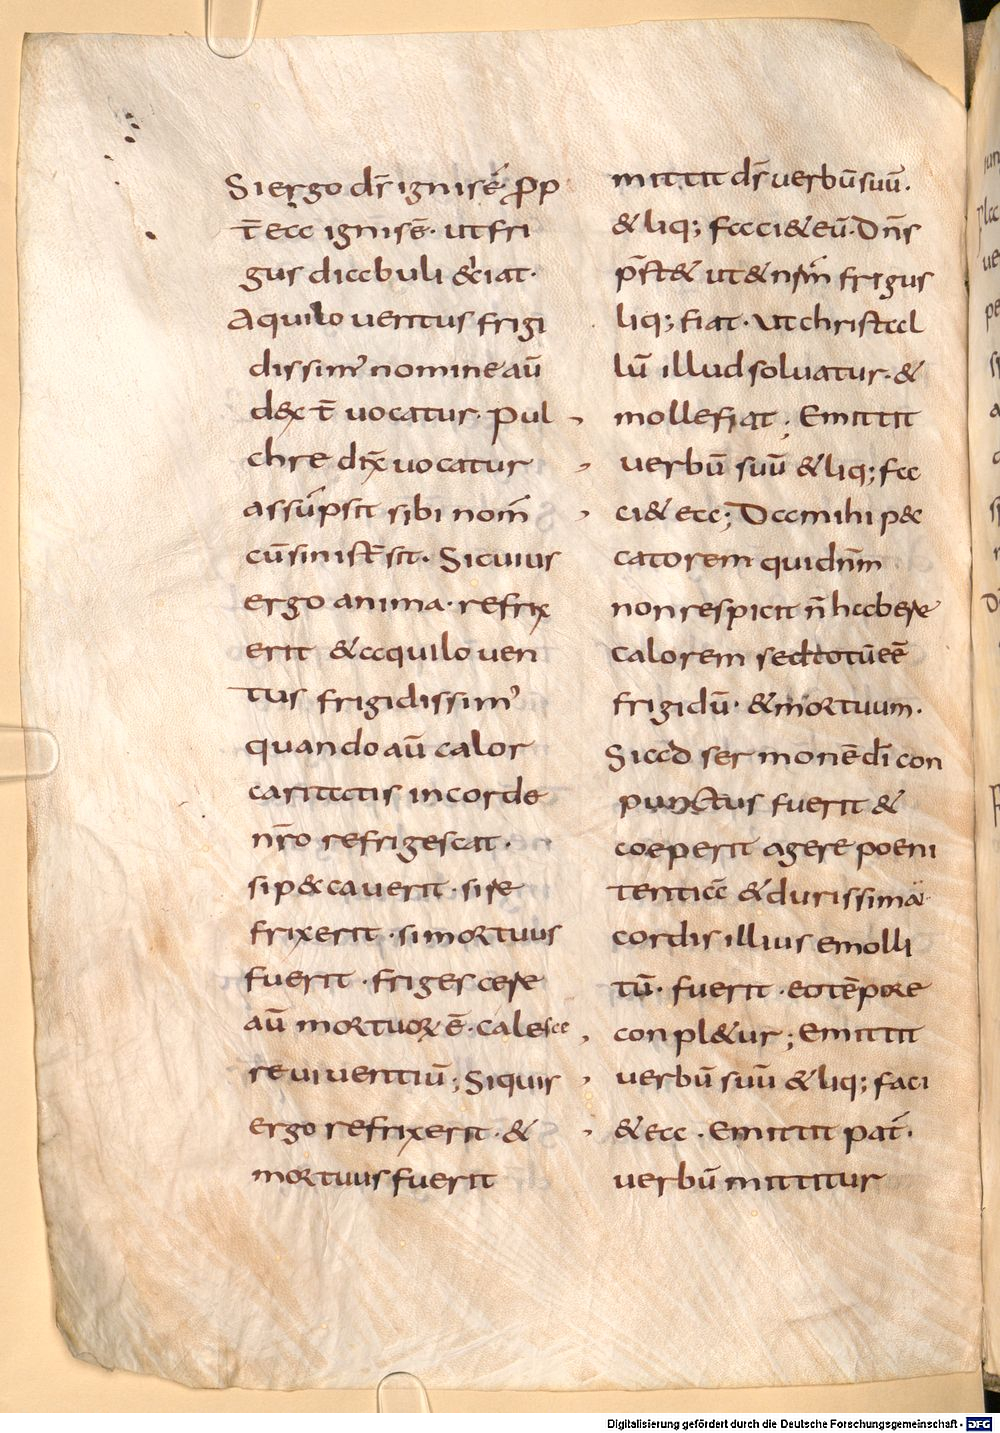 Si ergo dſ ignis ē. ꝓp
t̄ ea ignis ē. ut fri
gus diabuli eiciat.
Aquilo uentus frigi
dissim' nomine aū
dext̄ uocatur. Pul
chre dix uocatur
assūpsit sibi nom̄
cū sinist̄ sit. Si cuius
ergo anima. refrix
erit & aquilo uen
tus frigidissim'
quando aū calor
caritatis in corde
nr̄o refrigescat.
si peccauerit. si re
frixerit. si mortuus
fuerit. frigescere
aū mortuoꝝ ē. calesce
re uiuentiū; Si quis
ergo refrixerit. &
mortuus fuerit
mittit dſ uerbū suū.
& liq; faci& eū. Dn̄s
p̄st& ut & nr̄m frigus
liq; fiat. Ut christal
lū illud soluatur. &
molle fiat; Emittit
uerbū suū & liq; fa
ci& ea; Da mihi pec
catorem qui dn̄m
non respicit n̄ habere
calorem sed totū eē
frigidū. & mortuum.
Si ad sermonē dī con
punctus fuerit &
coeperit agere poeni
tentiā & durissima
cordis illius emolli
tū. fuerit. eo tēpore
conpl&ur; Emittit
uerbū suū & liq; faci
& ea. Emittit pat̄.
uerbū mittitur
Digitalisierung gefördert durch die Deutsche Forschungsgemeinschaft - DFG